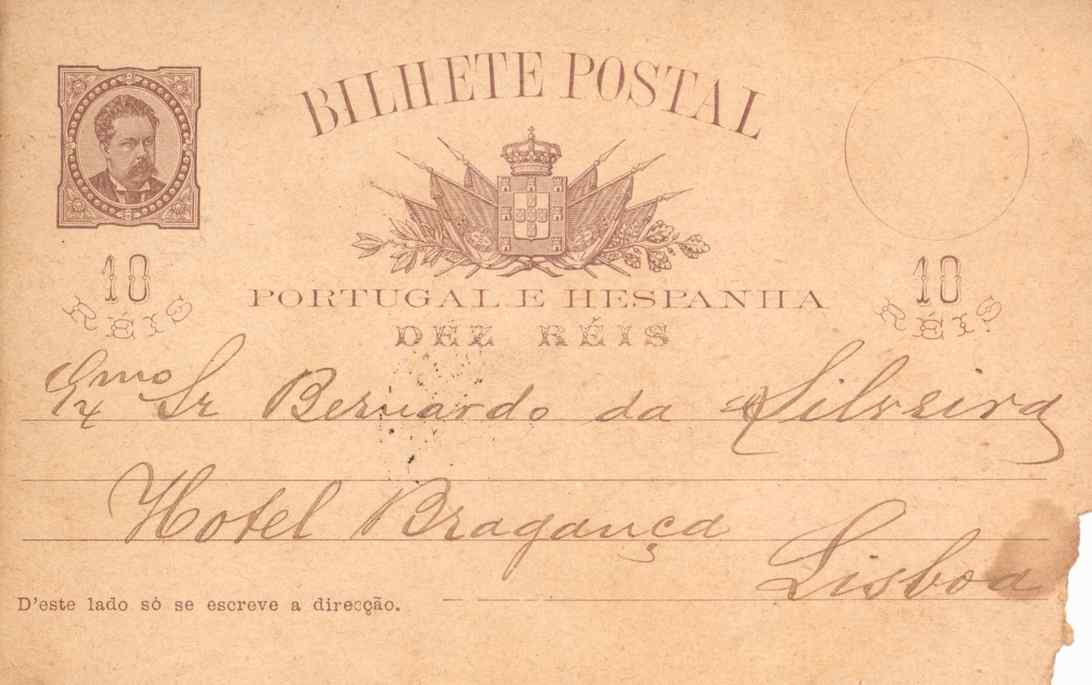 BILHETE POSTAL
10 RÉIS
10 RÉIS
PORTUGAL E HESPANHA
DEZ RÉIS
Exmo Sr Bernardo da Silveira
Hotel Bragança
Lisboa
D'este lado só se escreve a direcção.